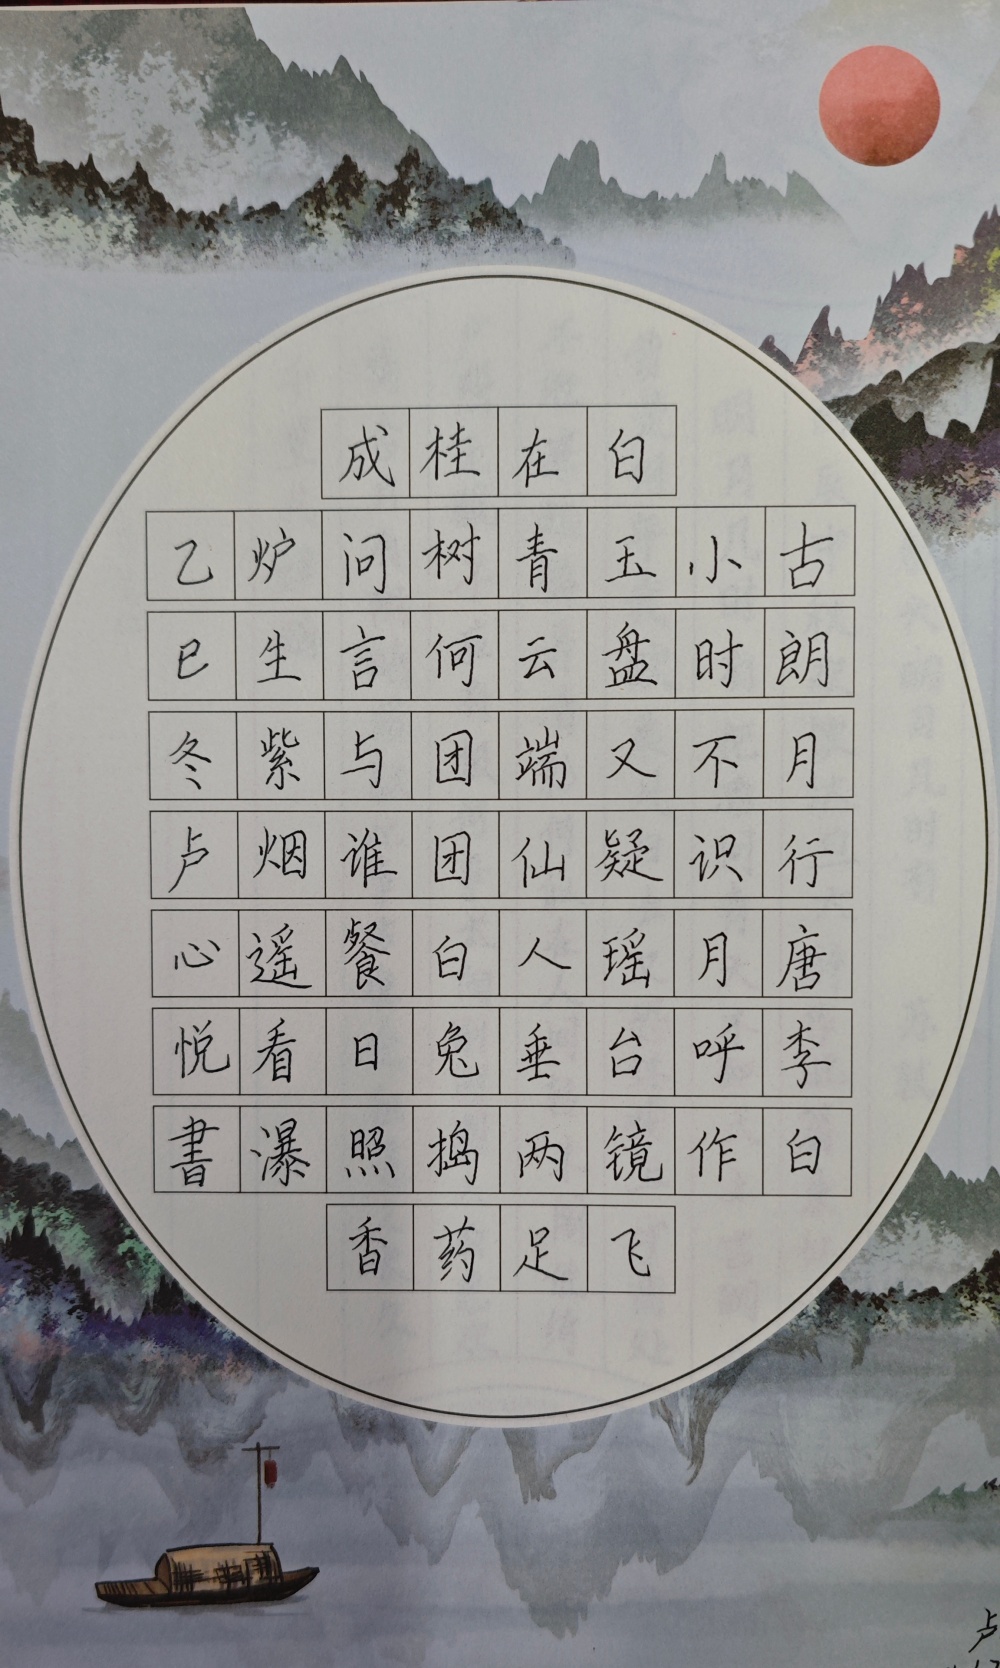 古朗月行唐李白
小时不识月呼作
白玉盘又疑瑶台镜飞
在青云端仙人垂两足
桂树何团团白兔捣药
成问言与谁餐日照香
炉生紫烟遥看瀑
乙巳冬卢心悦書
卢